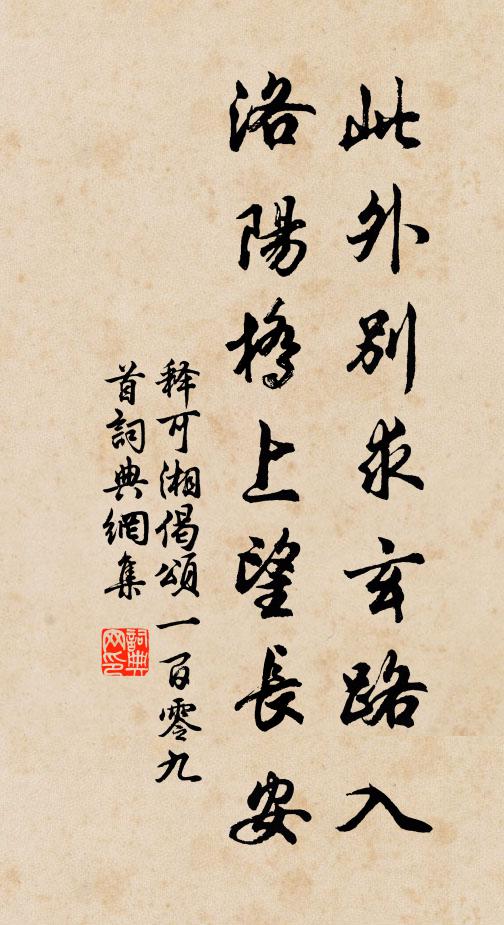 此外别求玄路入
洛陽橋上望長安
释可湘偈頌一百零九
首詞典網集
詞典网印